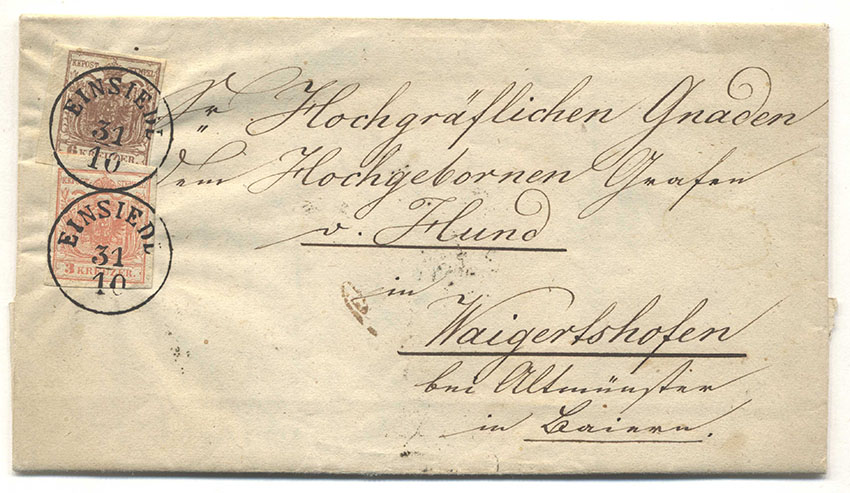 KKPOST-STEMPEL
6 KREUZER.
EINSIEDL
31
10
3 KREUZER.
EINSIEDL
31
10
Sr Hochgräflichen Gnaden
dem Hochgebornen Grafen
v. Hund
in
Waigertshofen
bei Altmünster
in Baiern.